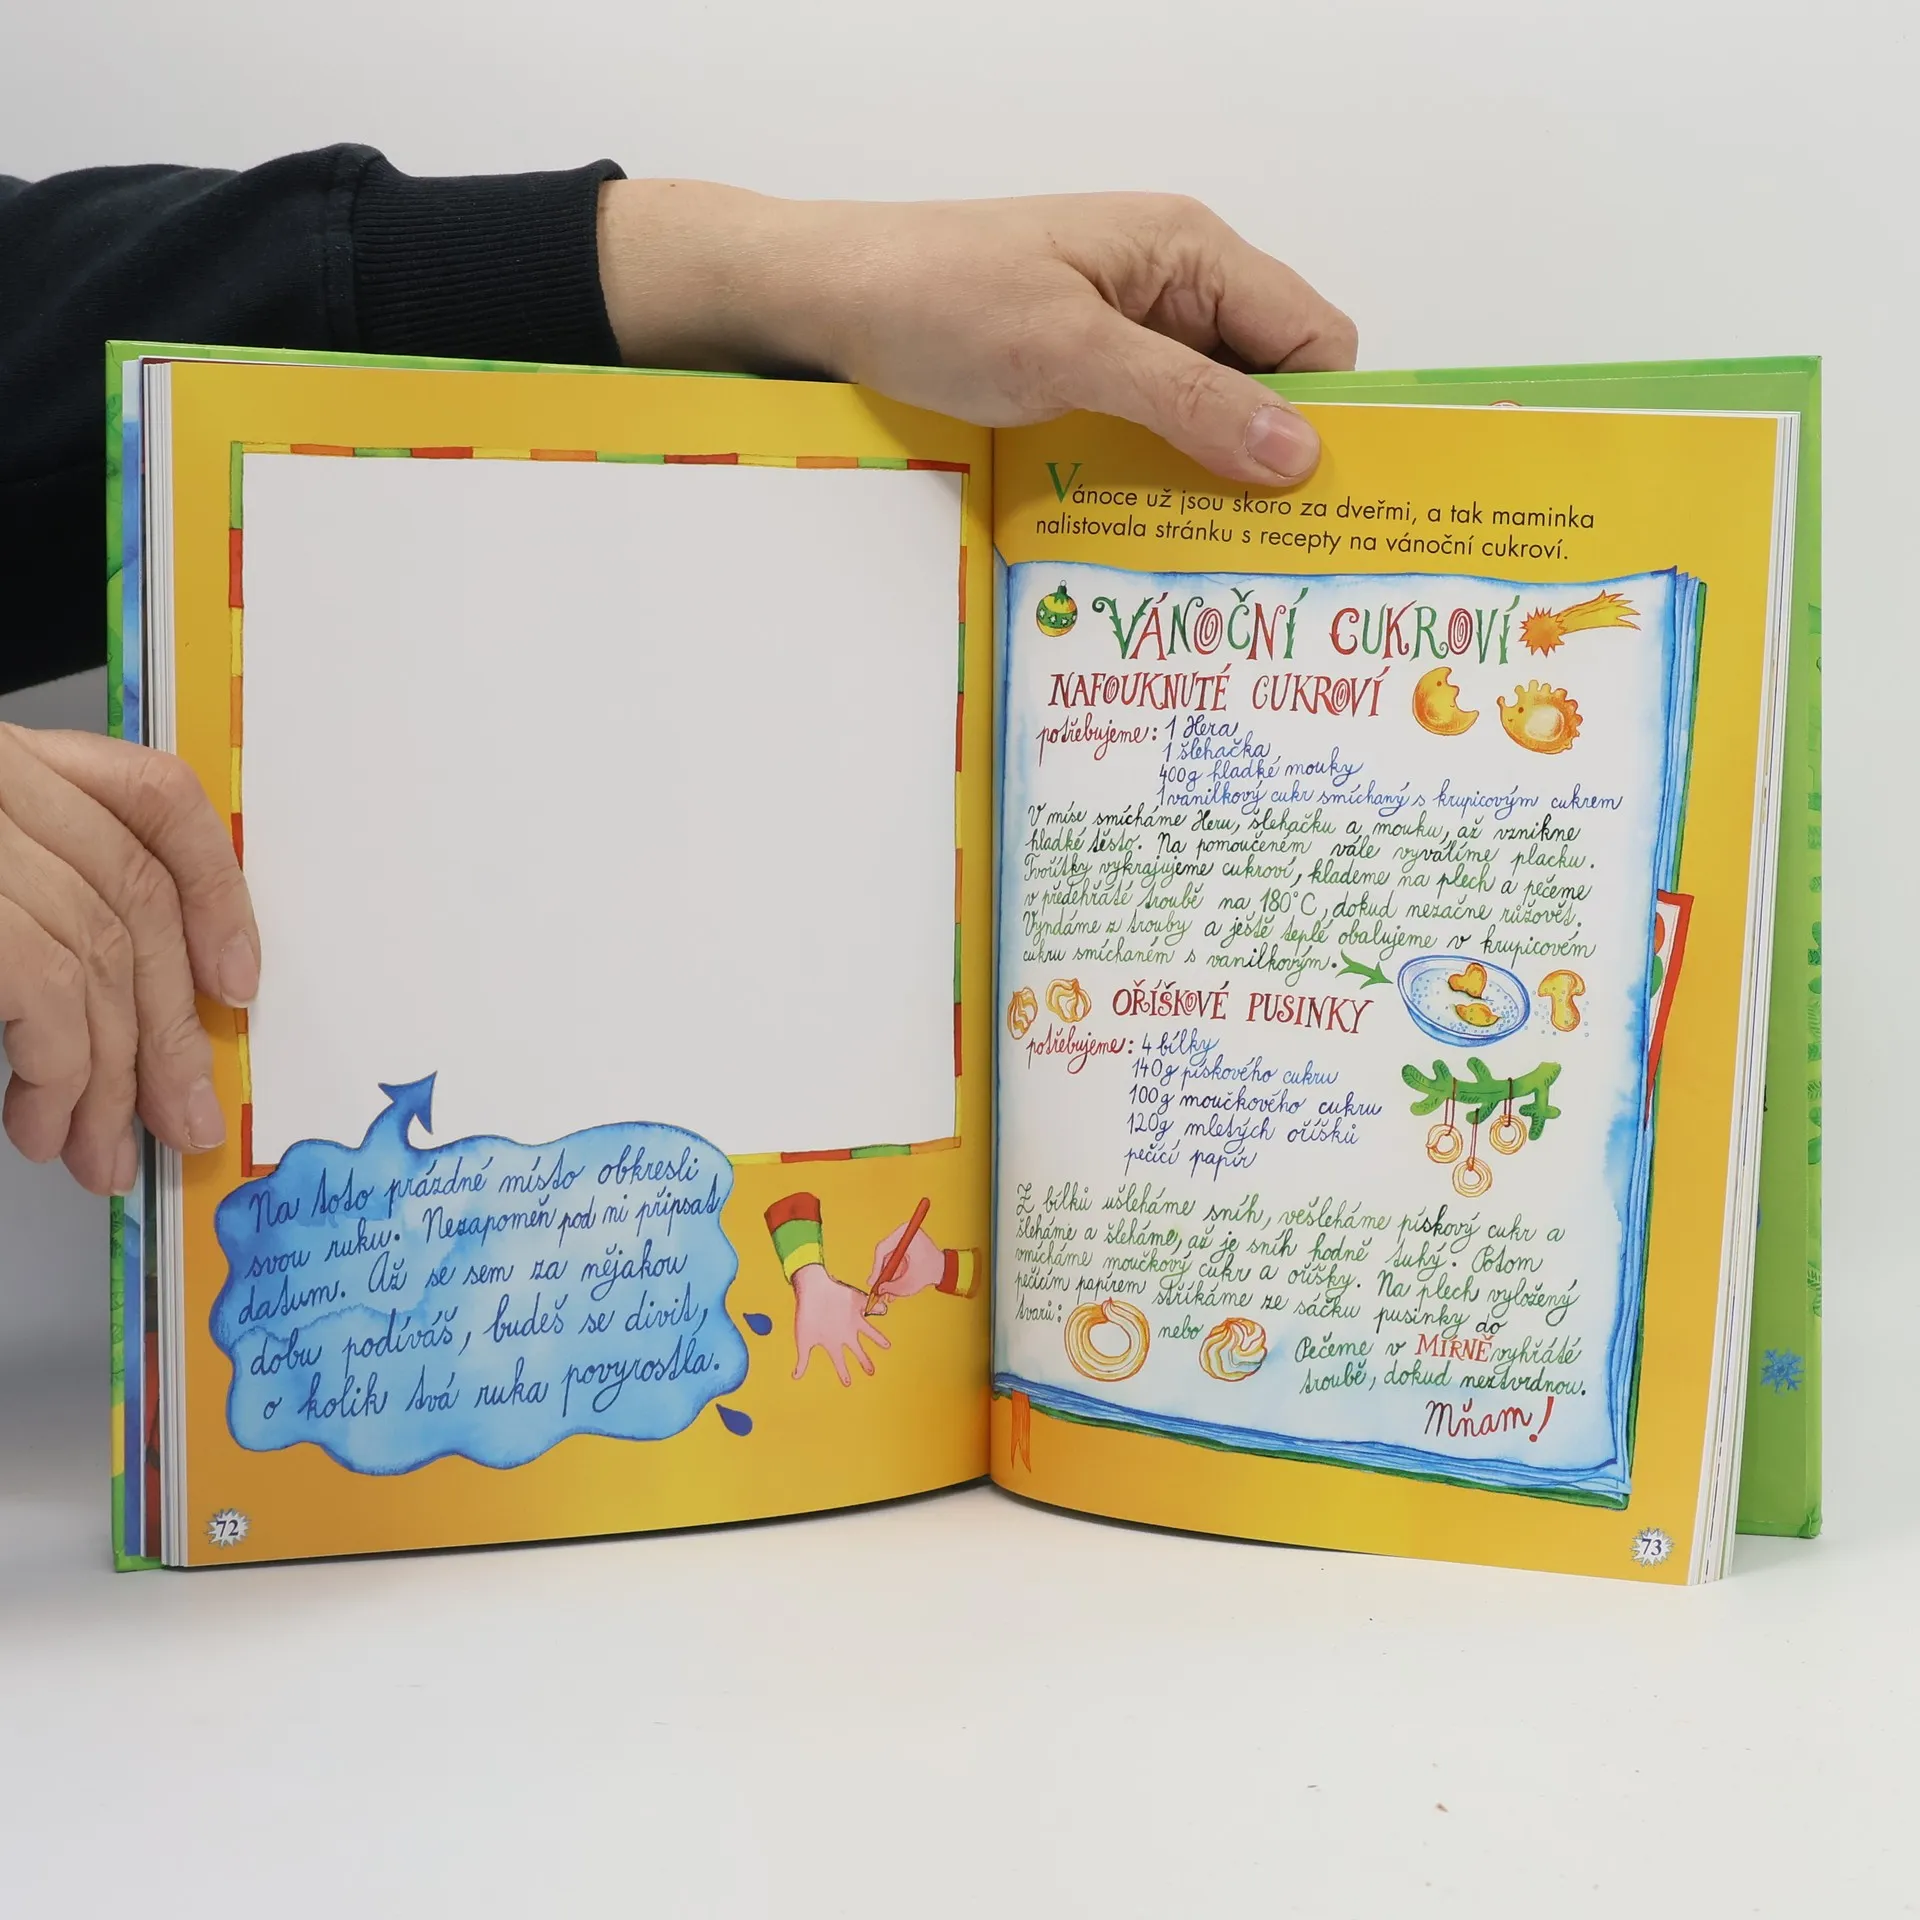 Na toto prázdné místo obkresli
svou ruku. Nezapomeň pod ni připsat
datum. Až se sem za nějakou
dobu podíváš, budeš se divit,
o kolik tvá ruka povyrostla.
72
Vánoce už jsou skoro za dveřmi, a tak maminka
nalistovala stránku s recepty na vánoční cukroví.
VÁNOČNÍ CUKROVÍ
NAFOUKNUTÉ CUKROVÍ
potřebujeme: 1 Hera
1 šlehačka
400g hladké mouky
1 vanilkový cukr smíchaný s krupicovým cukrem
V míse smícháme Heru, šlehačku a mouku, až vznikne
hladké těsto. Na pomoučeném vále vyválíme placku.
Tvořítky vykrajujeme cukroví, klademe na plech a pečeme
v předehřáté troubě na 180°C, dokud nezačne růžovět.
Vyndáme z trouby a ještě teplé obalujeme v krupicovém
cukru smíchaném s vanilkovým.
OŘÍŠKOVÉ PUSINKY
potřebujeme: 4 bílky
140g pískového cukru
100g moučkového cukru
120g mletých oříšků
pečící papír
Z bílků ušleháme sníh, vešleháme pískový cukr a
šleháme a šleháme, až je sníh hodně tuhý. Potom
vmícháme moučkový cukr a oříšky. Na plech vyložený
pečícím papírem stříkáme ze sáčku pusinky do
tvarů: nebo
Pečeme v MÍRNĚ vyhřáté
troubě, dokud neztvrdnou.
Mňam!
73